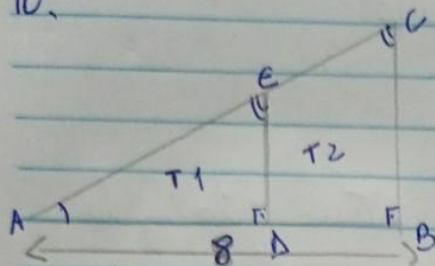 10.
C
E
T1
T2
A
B
8
D